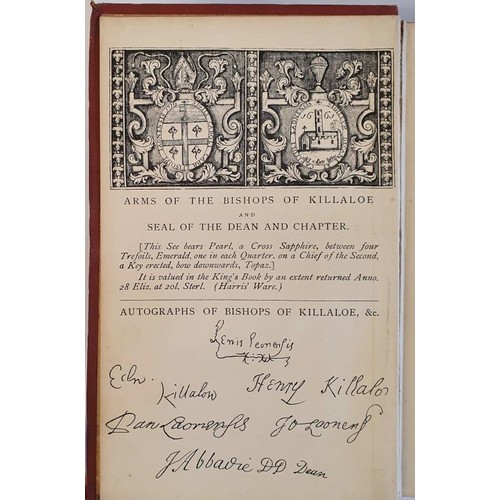 1661
ARMS OF THE BISHOPS OF KILLALOE
AND
SEAL OF THE DEAN AND CHAPTER.
[This See bears Pearl, a Cross Sapphire, between four
Trefoils, Emerald, one in each Quarter, on a Chief of the Second,
a Key erected, bow downwards, Topaz.]
It is valued in the King's Book by an extent returned Anno.
28 Eliz. at 20l. Sterl. (Harris' Ware.)
AUTOGRAPHS OF BISHOPS OF KILLALOE, &c.
Edw.
Killalow
Henry Killaloe
Dan Laonensis
Jo Laonens
J Abbadie DD Dean